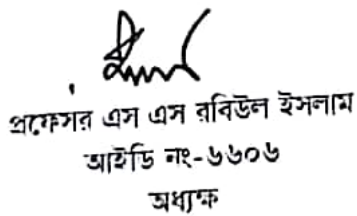 প্রফেসর এস এস রবিউল ইসলাম
আইডি নং-৬৬০৬
অধ্যক্ষ